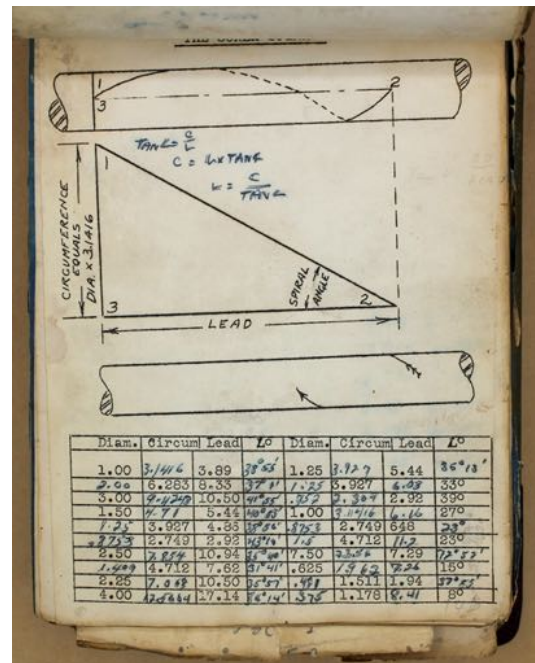 1
2
3
TANL = C/L
C = L x TANL
L = C/TANL
1
CIRCUMFERENCE
EQUALS
DIA. x 3.1416
SPIRAL
ANGLE
3
2
LEAD
Diam. Circum Lead L° Diam. Circum Lead L°
1.00 3.1416 3.89 38°55' 1.25 3.927 5.44 36°13'
2.00 6.283 8.33 37° 1.25 3.927 6.03 33°
3.00 9.4248 10.50 41°55' .752 2.304 2.92 39°
1.50 4.71 5.44 40°53' 1.00 3.1416 6.16 27°
1.25 3.927 4.86 .8753 2.749 648 23°
.8753 2.749 2.92 43°14' 1.5 4.712 11.2 23°
2.50 7.854 10.94 35°40' 7.50 23.56 7.29 72°52'
4.712 7.62 31°41' .625 1.963 7.26 15°
2.25 7.068 10.50 1.511 1.94
4.00 17.14 36°14' .375 1.178 8.41 8°